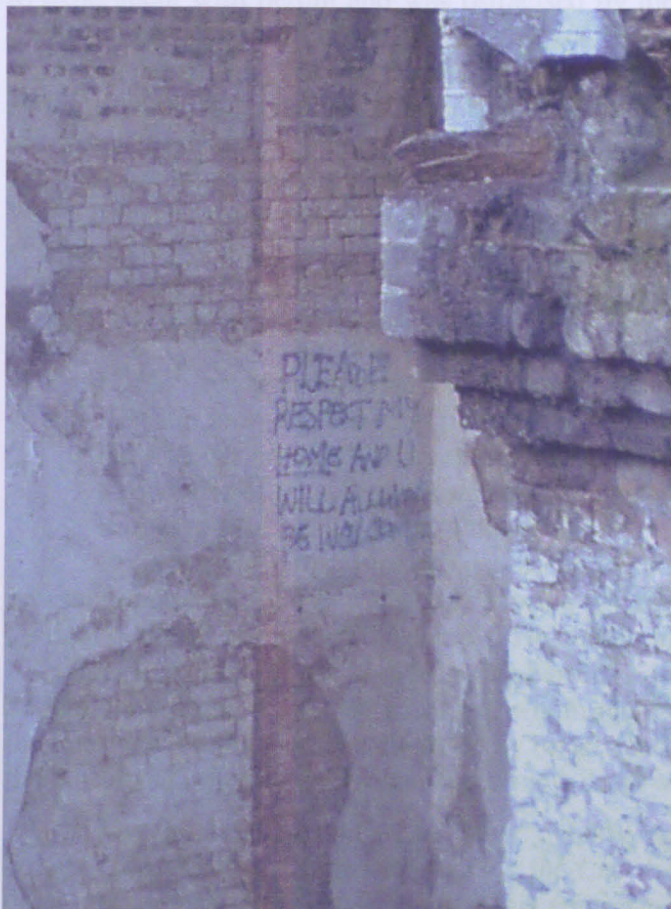 PLEASE
RESPECT MY
HOME AND U
WILL ALWAYS
BE WELCOME